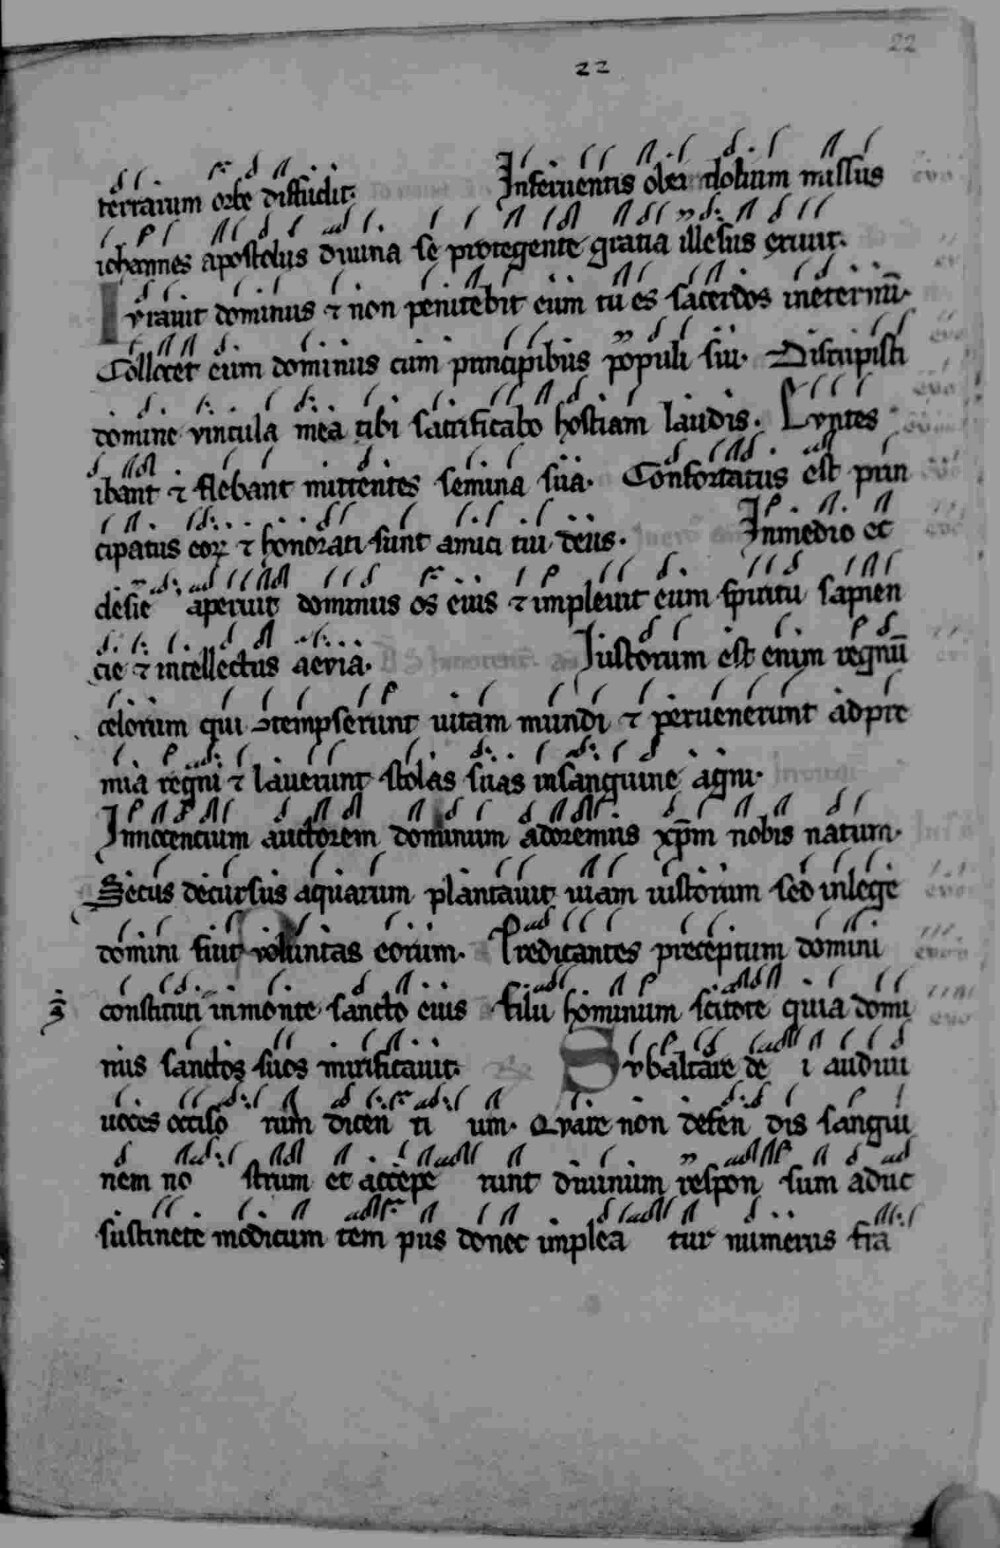 22
22
terrarum orbe diffudit. Inferuentis olei dolium missus
iohannes apostolus diuina se protegente gratia illesus exiuit.
Iurauit dominus ⁊ non penitebit eum tu es sacerdos ineternū.
Collocet eum dominus cum principibus populi sui. Disrupisti
domine vincula mea tibi sacrificabo hostiam laudis. Euntes
ibant ⁊ flebant mittentes semina sua. Confortatus est prin
cipatus eoꝝ ⁊ honorati sunt amici tui deus. Inmedio ec
clesie aperuit dominus os eius ⁊ impleuit eum spiritu sapien
cie ⁊ intellectus aeuia. Iustorum est enim regnū
celorum qui ꝯtempserunt uitam mundi ⁊ peruenerunt adpre
mia regni ⁊ lauerunt stolas suas insanguine agni.
Innocencium auctorem dominum adoremus xp̄m nobis natum.
Secus decursus aquarum plantauit uiam iustorum sed inlege
domini fuit voluntas eorum. Predicantes preceptum domini
constituti inmonte sancto eius filii hominum scitote quia domi
nus sanctos suos mirificauit. Subaltare de i audiui
uoces occiso rum dicen ti um. Quare non defen dis sangui
nem no strum et accepe runt diuinum respon sum adhuc
sustinete modicum tem pus donec implea tur numerus fra